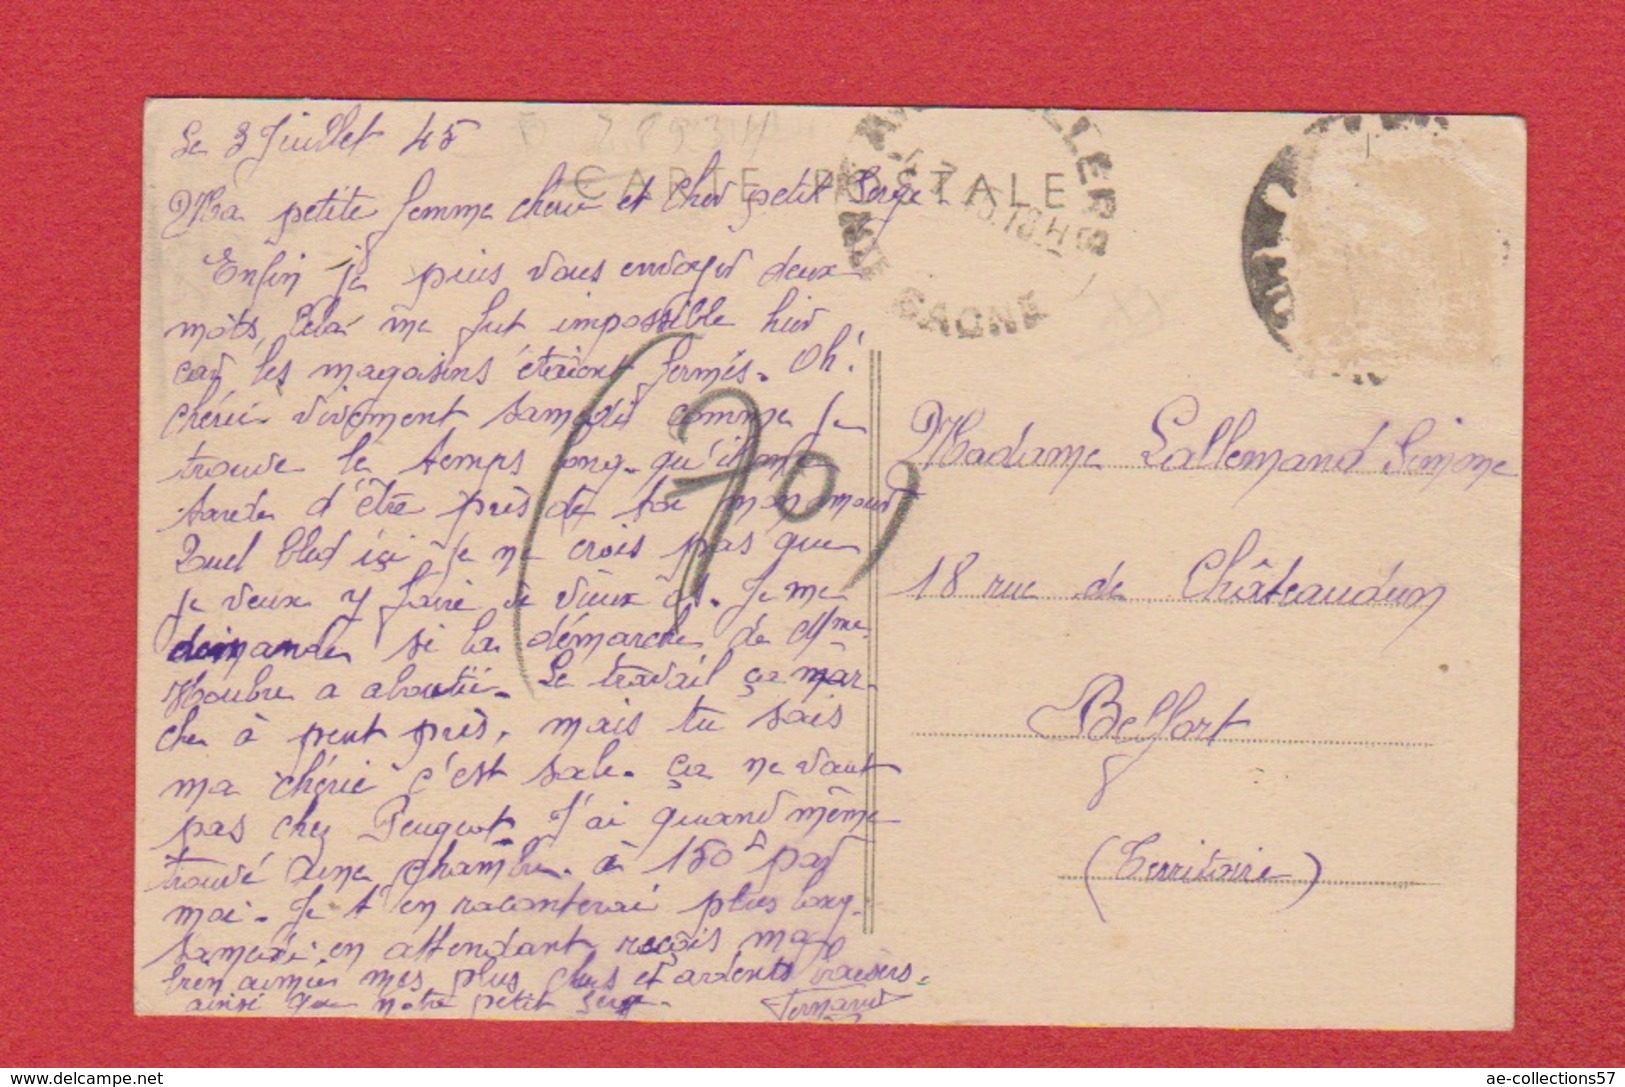 Le 3 Juillet 45
CARTE POSTALE
Ma petite femme chérie et cher petit Serge
Enfin je puis vous envoyer deux
mots, Cela me fut impossible hier
car les magasins étaient fermés. Oh!
chérie vivement samedi comme je
trouve le temps long. qu'il me
tarde d'être près de toi mon amour
Quel bled içi je ne crois pas que
je veux y faire de vieux os. Je me
demande si la démarche de Mme
Moubre a aboutie. Le travail ça mar-
che à peut près, mais tu sais
ma chérie c'est sale. ça ne vaut
pas chez Peugeot. J'ai quand même
trouvé une chambre. à 150f par
moi. Je t'en raconterai plus long
samedi. en attendant reçois ma
bien aimée mes plus chers et ardents baisers.
ainsi que notre petit Serge.
Fernand
(70)
GAGNE
Madame Lallemand Simone
18 rue de Châteaudun
Belfort
(Territoire)
delcampe.net
ae-collections57